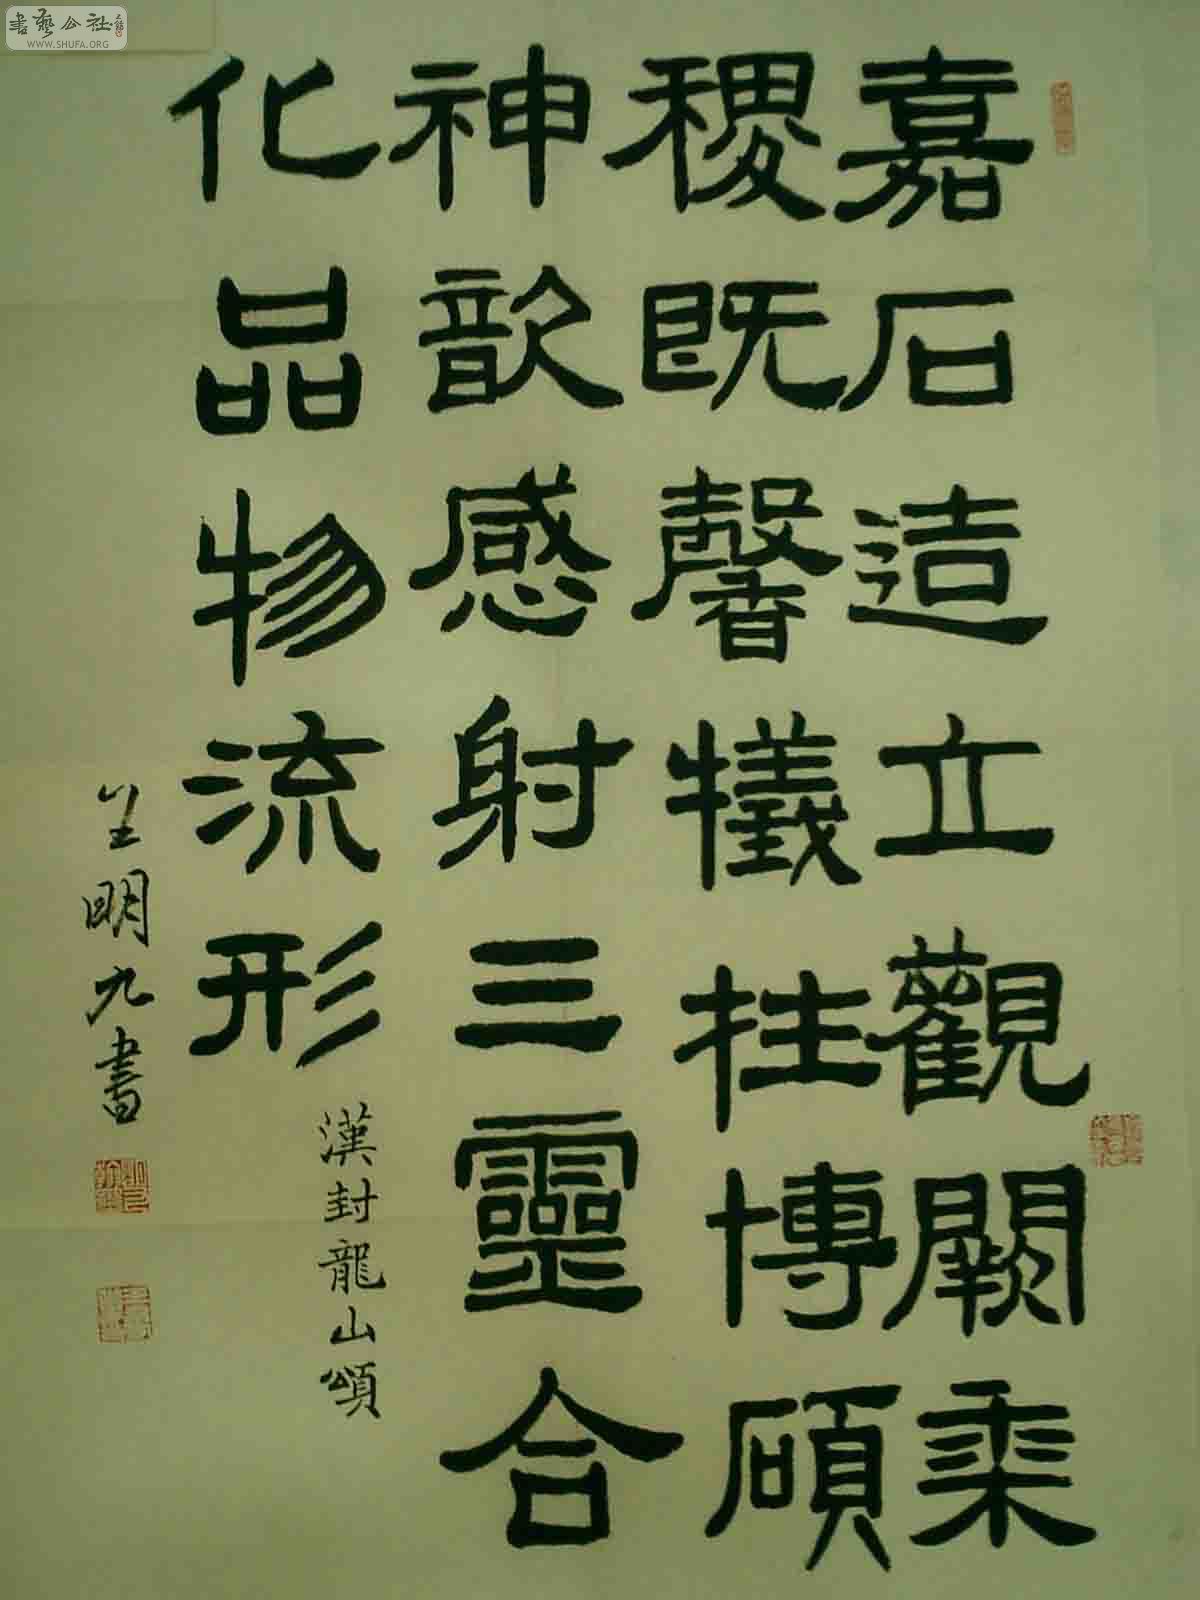 嘉石造立觀闕乘
稷既馨犠拄博碩
神歆感射三靈合
化品物流形
漢封龍山頌
明九書
書藝公社
WWW.SHUFA.ORG